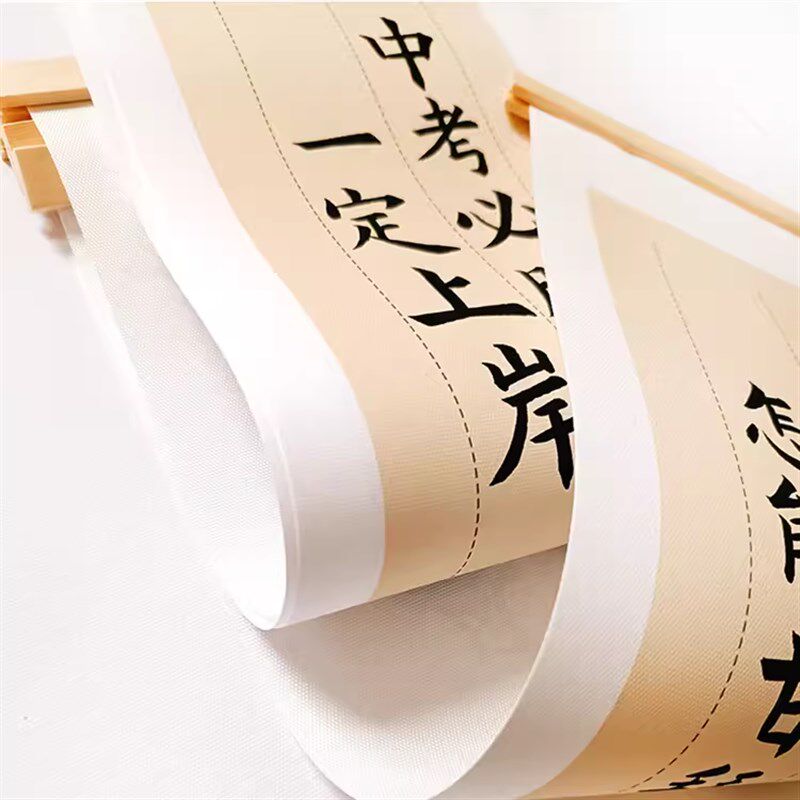 中考必
一定上岸
怎能